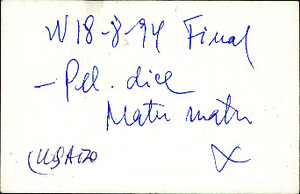 W 18-8-94 Final
- Pel. dice
Matu matu
(USADO
X